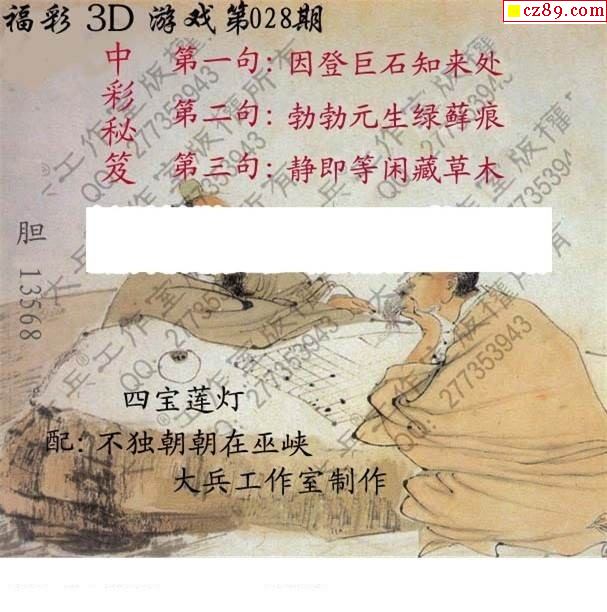 cz89.com
福彩 3D 游戏第028期
中彩秘笈
第一句：因登巨石知来处
第二句：勃勃元生绿藓痕
第三句：静即等闲藏草木
胆 13568
四宝莲灯
配：不独朝朝在巫峡
大兵工作室制作
大兵®工作室版權所有
QQ：277353943